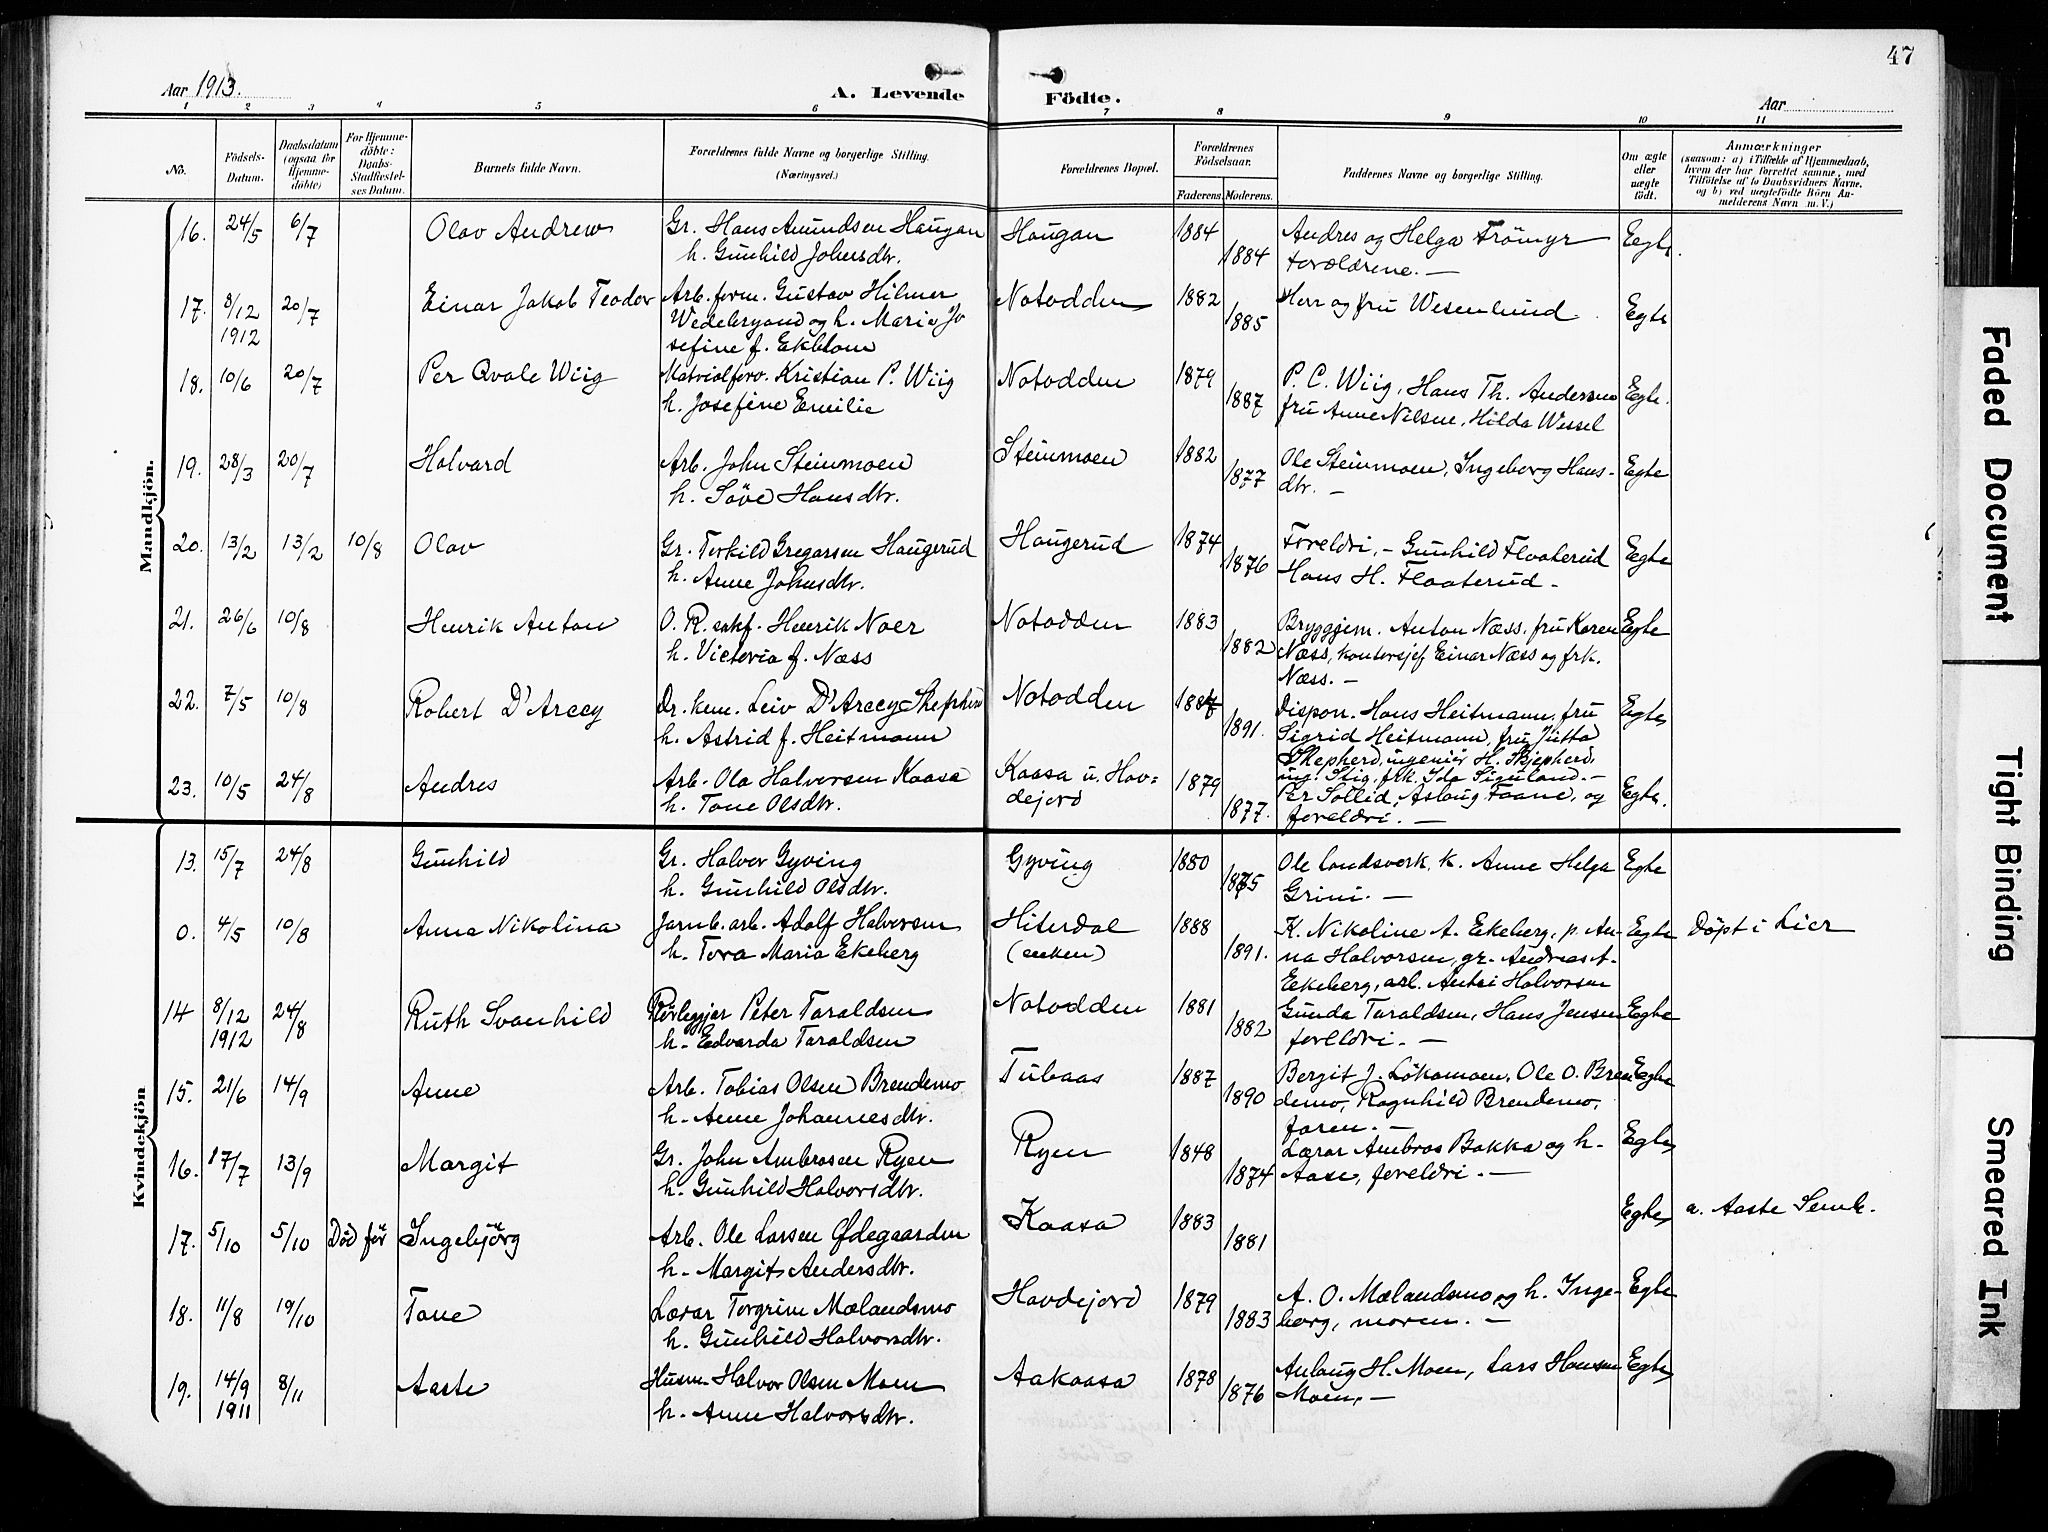 47
Aar 1913.
A. Levende Födte.
Aar
1 2 3 4 5 6 7 8 9 10 11
No.
Födsels-Datum.
Daabsdatum (ogsaa for Hjemme-döbte)
For Hjemme-döbte: Daabs-Stadfæstelses Datum.
Barnets fulde Navn.
Forældrenes fulde Navne og borgerlige Stilling. (Næringsvei.)
Forældrenes Bopæl.
Forældrenes Födselsaar.
Faderens. Moderens.
Faddernes Navne og borgerlige Stilling.
Om ægte eller uægte födt.
Anmærkninger
(saasom: a) i Tilfælde af Hjemmedaab, hvem der har forrettet samme, med Tilföielse af to Daabsvidners Navne, og b) ved uægtefödte Börn Anmelderens Navn m. V.)
Mandkjön.
16. 24/5 6/7 Olav Andrew Gr. Hans Amundsen Haugan Haugan 1884 Andres og Helga Frömyr Egte.
h. Gunhild Johnsdtr. 1884 forældrene. —
17. 8/12 20/7 Einar Jakob Teodor Arb. form. Gustav Hilmer Notodden 1882 Herr og fru Wesenlund Egte
1912 Wedebrgand og h. Maria Jo 1885
sefine f. Ekblom
18. 10/6 20/7 Per Qvale Wiig Matrialforv. Kristian P. Wiig Notodden 1879 P. C. Wiig, Hans Th. Andersen Egte.
h. Josefine Emilie 1887 fru Anne Nilsen, Hilda Wessel
19. 28/3 20/7 Halvard Arb. John Steinmoen Steinmoen 1882 Ole Steinmoen, Ingeborg Hans- Egte
h. Söve Hansdtr. 1877 dtr. —
20. 13/2 13/2 10/8 Olav Gr. Torkild Gregarsen Haugerud Haugerud 1874 Foreldri, – Gunhild Flaaterud Egte
h. Anne Johnsdtr. 1876 Hans H. Flaaterud –
21. 26/6 10/8 Henrik Anton O. R. sakf. Henrik Noer Notodden 1883 Bryggjem. Anton Næss, fru Karen Egte
h. Victoria f. Næss 1882 Næss, kontorsjef Einar Næss og frk.
Næss. —
22. 7/5 10/8 Robert D'Arcey Dr. kem. Leiv D'Arcey Shepherd Notodden 1887 Dispon. Hans Heitmann, fru Egte
h. Astrid f. Heitmann 1891. Sigrid Heitmann, fru Jutta
Shepherd, ingeniör H. Shepherd,
ing. Stig, frk. Ida Siguland. —
23. 10/5 24/8 Andres Arb. Ola Halvorsen Kaasa Kaasa u. Hov= 1879 Per Sollid, Aslaug Faane, og Egte.
h. Tone Olsdtr. dejord 1877. foreldri. —
Kvindekjön
13. 15/7 24/8 Gunhild Gr. Halvor Gyving Gyving 1880 Ole Landsverk, k. Anne Helga Egte
h. Gunhild Olsdtr. 1875 Grini. —
0. 4/5 10/8 Anna Nikolina Jarnb. arb. Adolf Halvorsen Hiterdal 1888 K. Nikoline A. Ekeberg, p. An- Egte Döpt i Lier
h. Tora Maria Ekeberg 1891. na Halvorsen, gr. Andreas A.
Ekeberg, arb. Halvorsen
14 8/12 24/8 Ruth Svanhild Rörleggjar Peter Taraldsen Notodden 1881 Gunda Taraldsen, Hans Jensen Egte
1912 h. Edvarda Taraldsen 1882 foreldri. —
15. 21/6 14/9 Anne Arb. Tobias Olsen Brendemo Tubaas 1887 Bergit J. Lökamoen, Ole O. Bren Egte
h. Anne Johannesdtr. 1890 demo, Ragnhild Brendemo,
faren. —
16. 17/7 13/9 Margit Gr. John Ambrosen Ryen Ryen 1848 Lærar Ambros Bakka og h. Egte
h. Gunhild Halvorsdtr. 1874 Aase, foreldri. —
17. 5/10 5/10 Död för Ingebjörg Arb. Ole Larsen Ödegaarden Kaasa 1883 Egte a. Aaste Semb.
h. Margit Andersdtr. 1881
18. 11/8 19/10 Tone Lærar Torgrim Mælandsmo Havdejord 1879 A. O. Mælandsmo og h. Inge- Egte
h. Gunhild Halvorsdtr. 1883 borg, moren. —
19. 14/9 8/11 Aaste Husm. Halvor Olsen Moen Aakaasa 1878 Anlaug H. Moen, Lars Hansen Egte
1911 h. Anne Halvorsdtr. 1876 Moen. —
Faded Document
Tight Binding
Smeared Ink